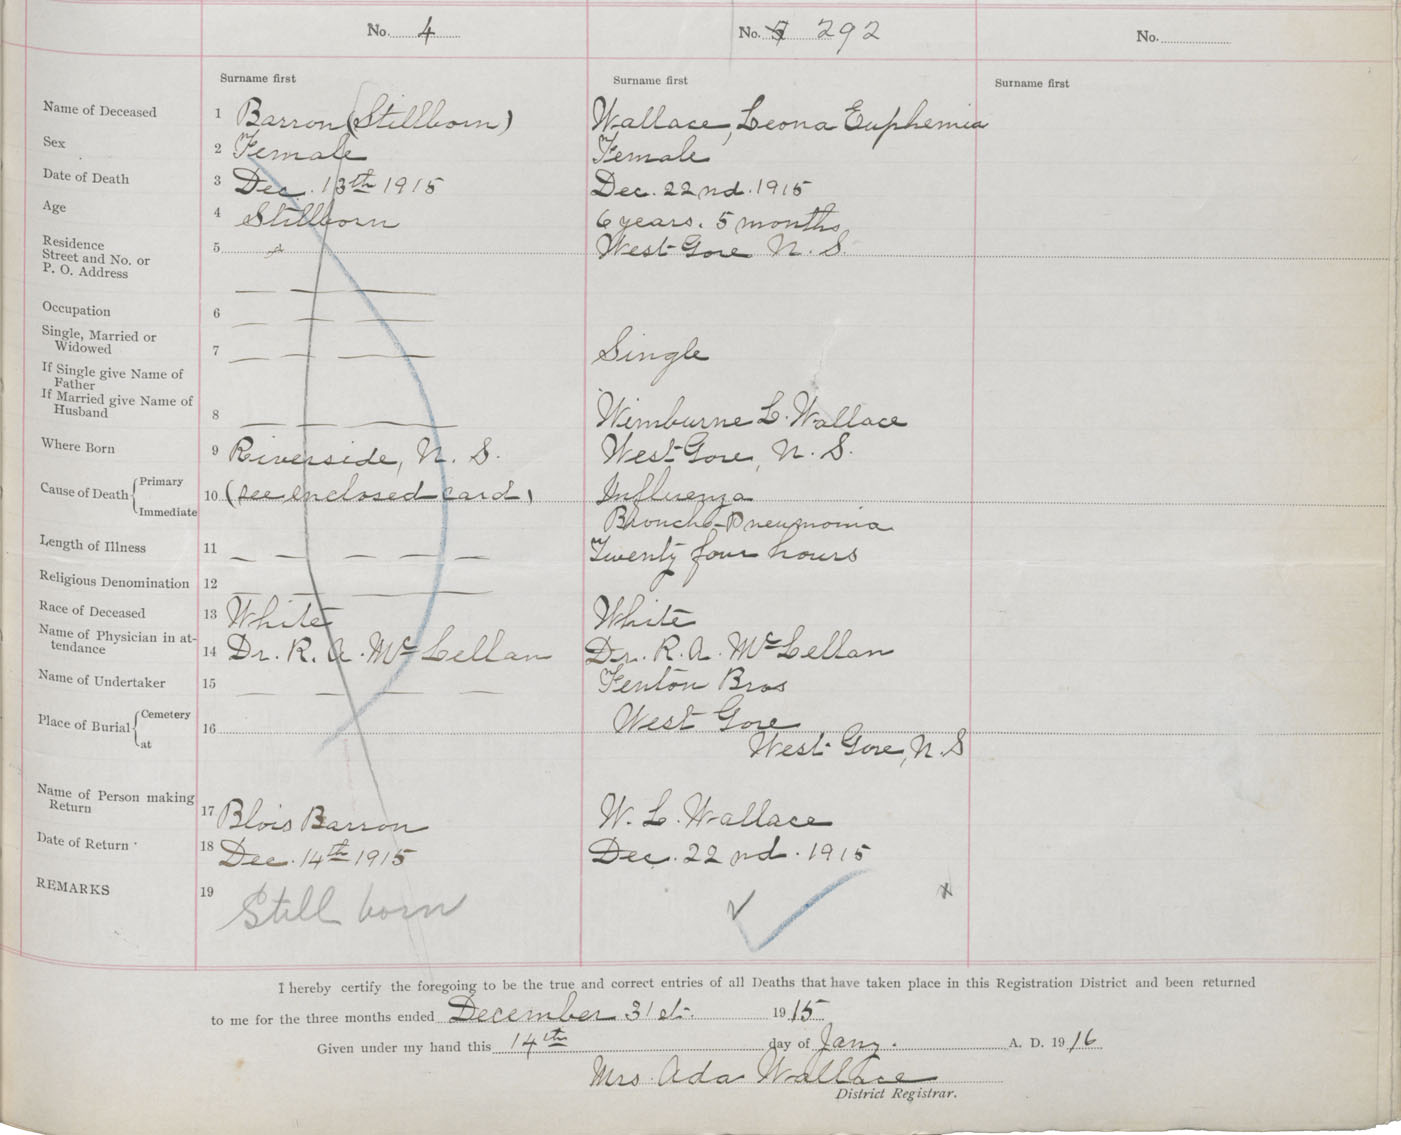 No. 4 No. 5 292 No.
Surname first Surname first Surname first
Name of Deceased 1 Barron (Stillborn) Wallace, Leona Euphemia
Sex 2 Female Female
Date of Death 3 Dec. 13th 1915 Dec. 22nd. 1915
Age 4 Stillborn 6 years. 5 months
Residence
Street and No. or
P. O. Address
5 West Gore N. S.
Occupation 6
Single, Married or
Widowed
7 Single
If Single give Name of
Father
If Married give Name of
Husband
8 Wimburne L. Wallace
Where Born 9 Riverside, N. S. West Gore, N. S.
Cause of Death { Primary
Immediate
10 (see enclosed card) Influenza
Broncho-Pneumonia
Length of Illness 11 Twenty four hours
Religious Denomination 12
Race of Deceased 13 White White
Name of Physician in at-
tendance
14 Dr. R. A. McLellan Dr. R. A. McLellan
Name of Undertaker 15 Fenton Bros
Place of Burial { Cemetery
at
16 West Gore
West Gore, N. S
Name of Person making
Return
17 Blois Barron W. L. Wallace
Date of Return 18 Dec. 14th 1915 Dec. 22nd. 1915
REMARKS 19 Still born
I hereby certify the foregoing to be the true and correct entries of all Deaths that have taken place in this Registration District and been returned
to me for the three months ended December 31st. 1915
Given under my hand this 14th day of Jany. A. D. 1916
Mrs. Ada Wallace
District Registrar.